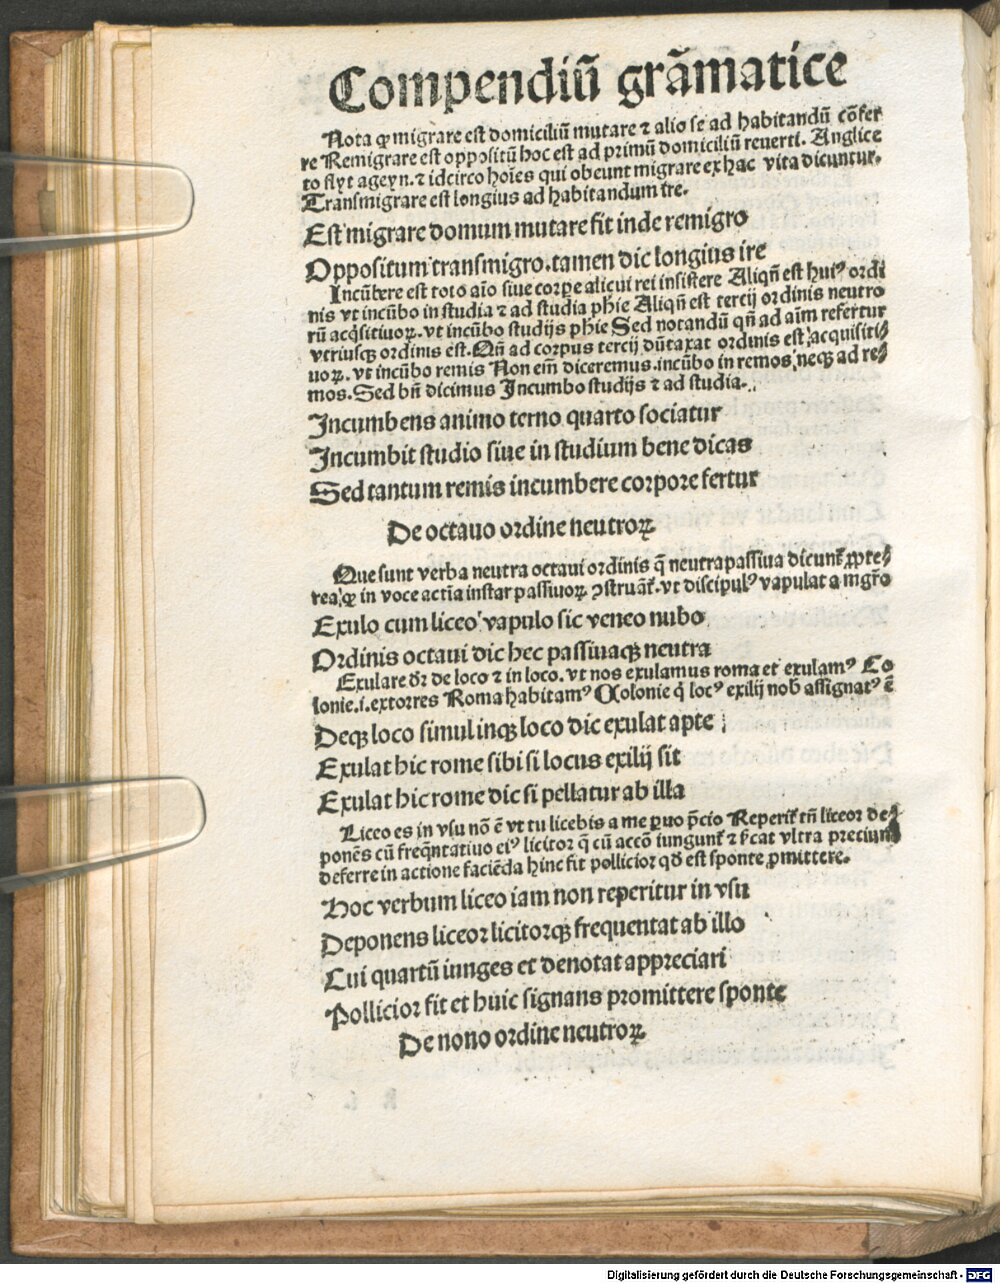 Compendiū grāmatice
Nota ꝙ migrare est domiciliū mutare ⁊ alio se ad habitandū cōfer
re Remigrare est oppositū hoc est ad primū domiciliū reuerti. Anglice
to flyt ageyn. ⁊ idcirco hoīes qui obeunt migrare ex hac vita dicuntur.
Transmigrare est longius ad habitandum ire.
Est migrare domum mutare fit inde remigro
Oppositum transmigro. tamen dic longius ire
Incūbere est toto aīo siue corꝑe alicui rei insistere Aliqn̄ est huiꝰ ordi
nis vt incūbo in studia ⁊ ad studia phīe Aliqn̄ est tercij ordinis neutro
rū acq̇sitiuoꝝ. vt incūbo studijs phīe Sed notandū qn̄ ad aīm refertur
vtriusqꝫ ordinis est. Qn̄ ad corpus tercij dūtaxat ordinis est acquisiti⸗
uoꝝ. vt incūbo remis Non eīm diceremus. incūbo in remos neqꝫ ad re⸗
mos. Sed bn̄ dicimus Incumbo studijs ⁊ ad studia.
Incumbens animo terno quarto sociatur
Incumbit studio siue in studium bene dicas
Sed tantum remis incumbere corpore fertur
De octauo ordine neutroꝝ
Que sunt verba neutra octaui ordinis q̄ neutrapassiua dicunt̄ ꝓpte⸗
rea ꝙ in voce actīa instar passiuoꝝ ꝯstruāt̄. vt discipulꝰ vapulat a mgr̄o
Exulo cum liceo vapulo sic veneo nubo
Ordinis octaui dic hec passiuaqꝫ neutra
Exulare dr̄ de loco ⁊ in loco. vt nos exulamus roma et exulamꝰ Co
lonie. i. extorres Roma habitamꝰ Colonie q̇ locꝰ exilij nob̄ assignatꝰ ē
Deqꝫ loco simul inqꝫ loco dic exulat apte
Exulat hic rome sibi si locus exilij sit
Exulat hic rome dic si pellatur ab illa
Liceo es in vsu nō ē vt tu licebis a me ꝑuo p̄cio Reperit̄ tn̄ liceor de⸗
ponēs cū freq̄ntatiuo eiꝰ licitor q̄ cū accō iungunt̄ ⁊ sīcat vltra precium
deferre in actione faciēda hinc fit pollicior qd̄ est sponte ꝓmittere.
Hoc verbum liceo iam non reperitur in vsu
Deponens liceor licitorqꝫ frequentat ab illo
Cui quartū iunges et denotat appreciari
Pollicior fit et huic signans promittere sponte
De nono ordine neutroꝝ
Digitalisierung gefördert durch die Deutsche Forschungsgemeinschaft - DFG